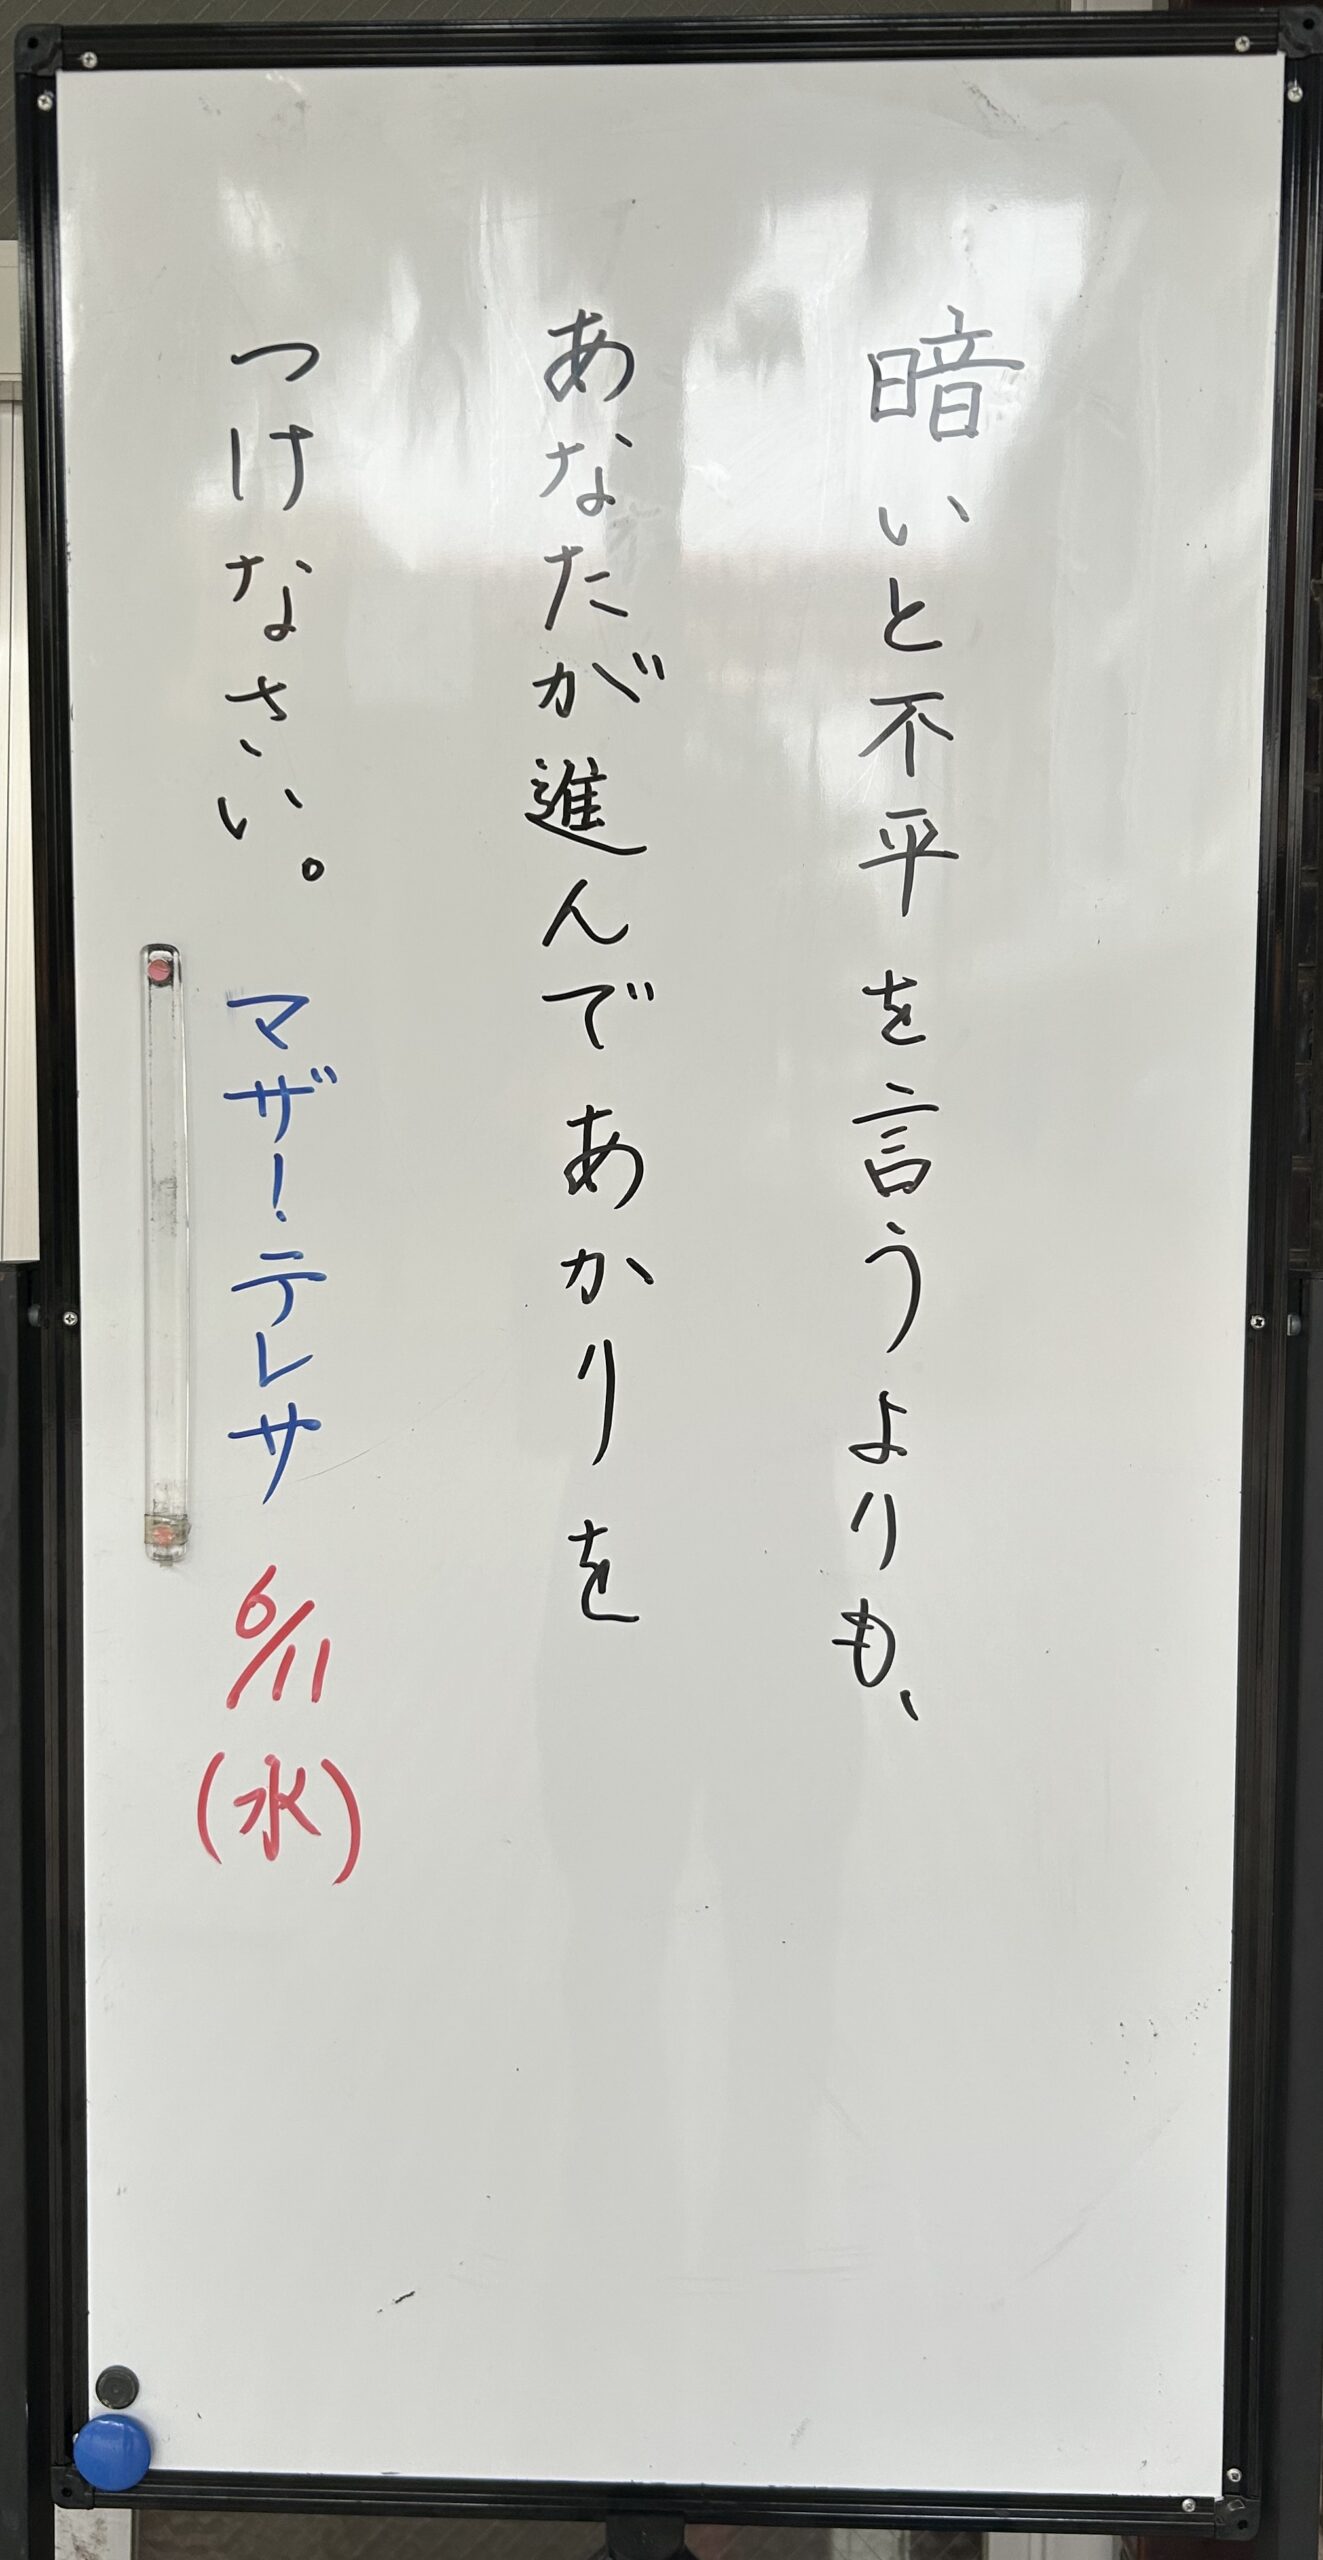 暗いと不平を言うよりも、
あなたが進んであかりを
つけなさい。 マザーテレサ 6/11(水)